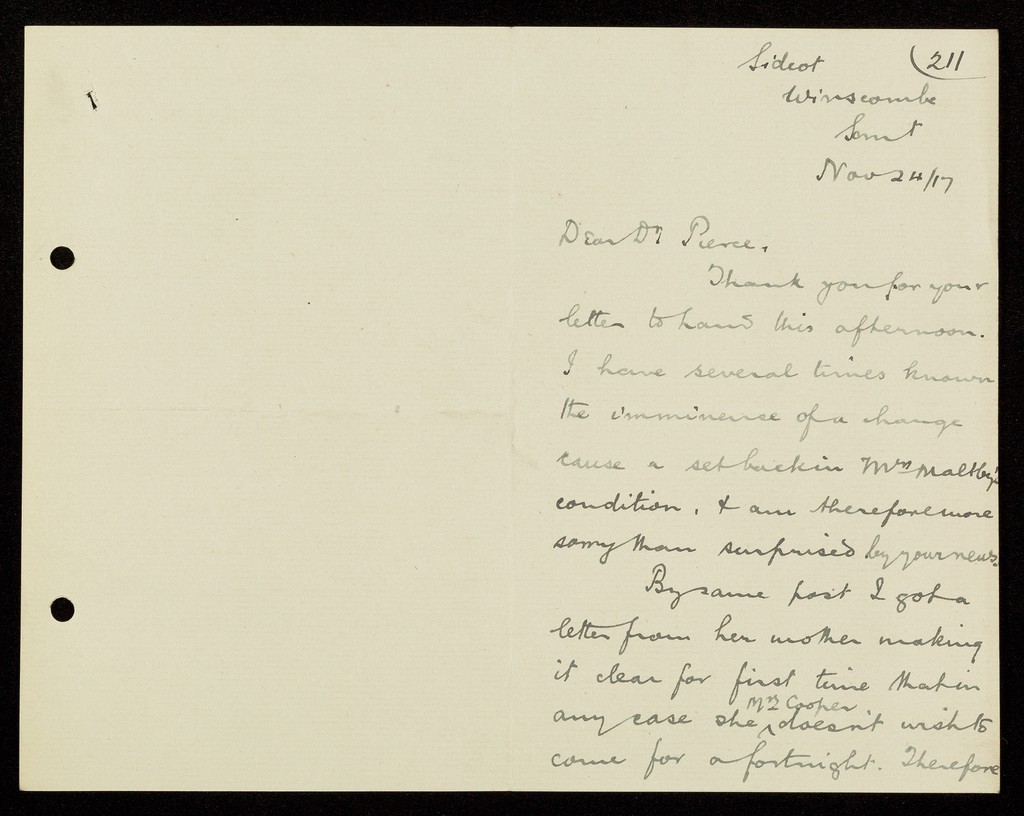 211
Sidcot
Winscombe
Somt
Nov 24/17
Dear Dr Pierce,
Thank you for your
letter to hand this afternoon.
I have several times known
the imminence of a change
cause a set back in Mrs Maltby's
condition, & am therefore more
sorry than surprised by your news.
By same post I got a
letter from her mother making
it clear for first time that in
any case she Mrs Cooper doesn't wish to
come for a fortnight. Therefore